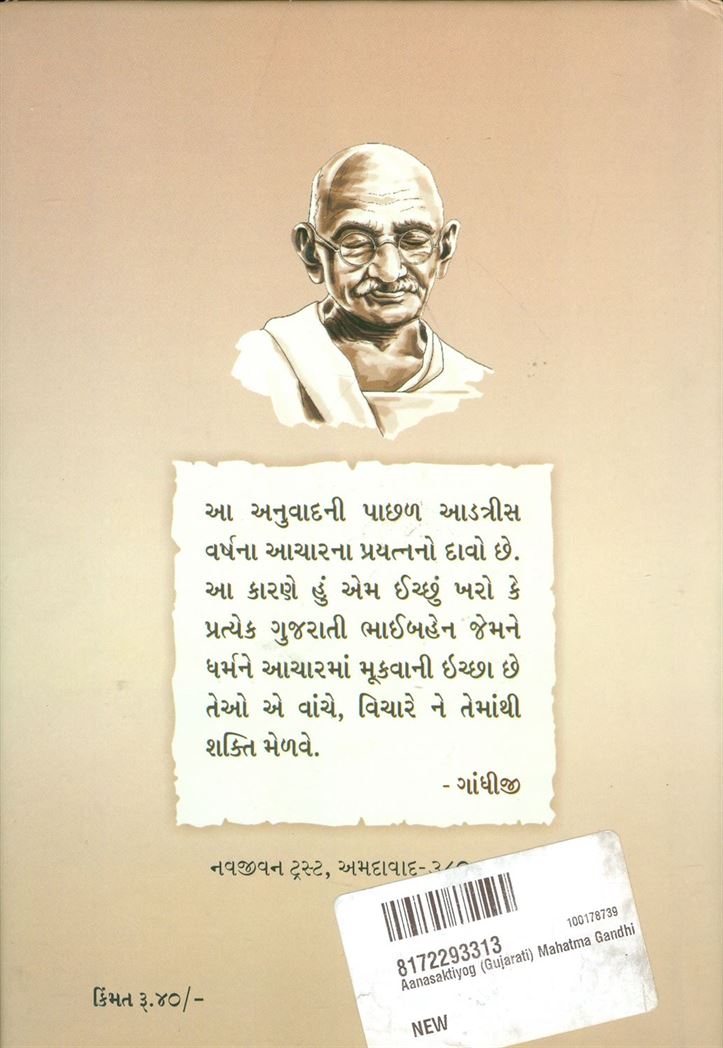 આ અનુવાદની પાછળ આડત્રીસ
વર્ષના આચારના પ્રયત્નનો દાવો છે.
આ કારણે હું એમ ઈચ્છું ખરો કે
પ્રત્યેક ગુજરાતી ભાઈબહેન જેમને
ધર્મને આચારમાં મૂકવાની ઇચ્છા છે
તેઓ એ વાંચે, વિચારે ને તેમાંથી
શક્તિ મેળવે.
- ગાંધીજી
નવજીવન ટ્રસ્ટ, અમદાવાદ-
100178739
8172293313
Aanasaktiyog (Gujarati) Mahatma Gandhi
NEW
કિંમત રૂ.૪૦/-